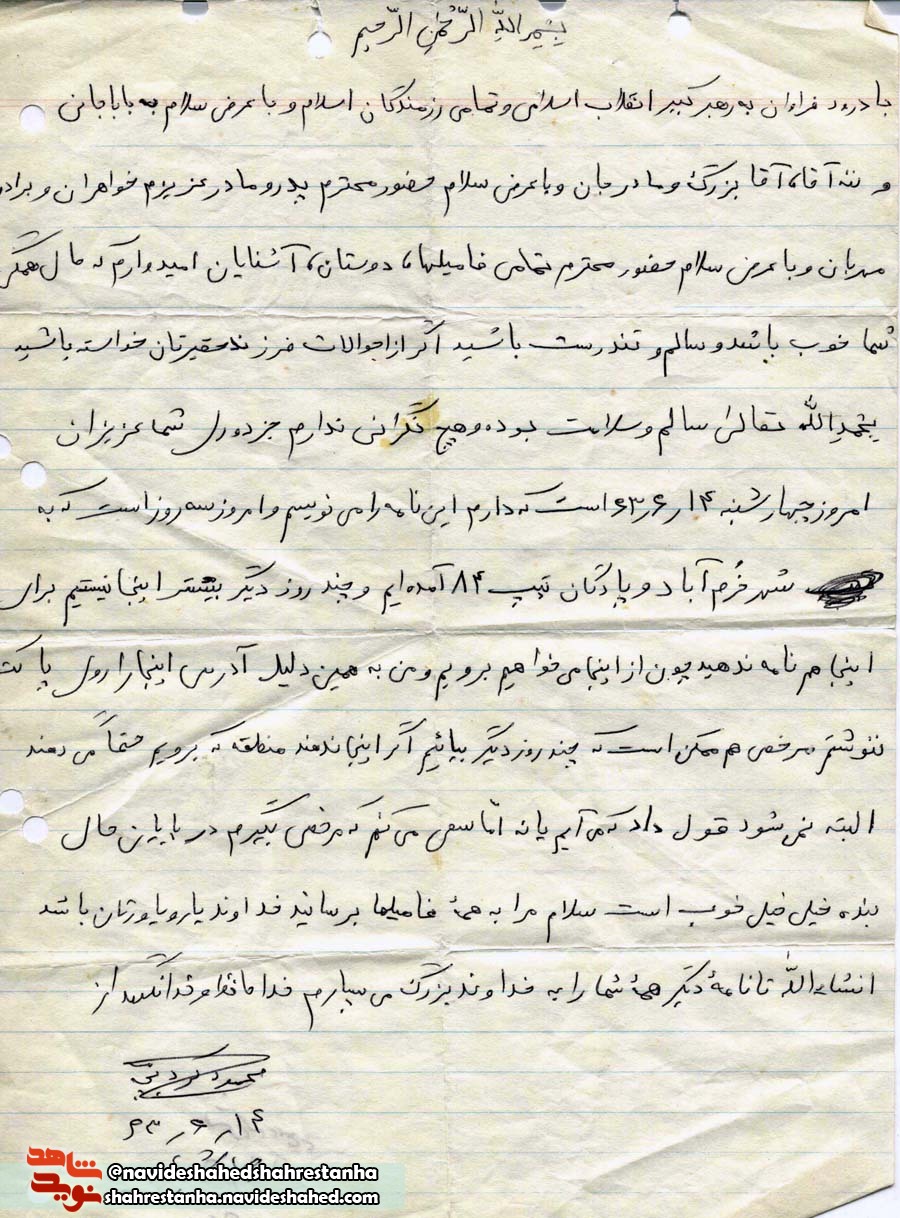 بِسْمِ اللهِ الرَّحْمٰنِ الرَّحیم
با درود فراوان به رهبر کبیر انقلاب اسلامی و تمامی رزمندگان اسلام و با عرض سلام به باباجانی
و ننه آقا، آقا بزرگ و مادر جان و با عرض سلام حضور محترم پدر و مادر عزیزم خواهران و برادر
مهربان و با عرض سلام حضور محترم تمامی فامیلها، دوستان، آشنایان امیدوارم که حال همگی
شما خوب باشد و سالم و تندرست باشید اگر از احوالات فرزند حقیرتان خواسته باشید
بحمدِ اللّه تعالی سالم و سلامت بوده و هیچ نگرانی ندارم جز دوری شما عزیزان
امروز چهارشنبه ۱۴ر۶ر۶۳ است که دارم این نامه را می نویسم و امروز سه روز است که به
شهر خُرم آباد و پادگان تیپ ۸۴ آمده ایم و چند روز دیگر بیشتر اینجا نیستیم برای
اینجا هم نامه ندهید چون از اینجا می خواهیم برویم و من به همین دلیل آدرس اینجا را روی پاکت
ننوشتم مرخصی هم ممکن است که چند روز دیگر بیائیم اگر اینجا ندهند منطقه که برویم حتماً می دهند
البته نمی شود قول داد که می آیم یا نه امّا سعی می کنم که مرخصی بگیرم در پایان حال
بنده خیلی خیلی خوب است سلام مرا به همهٔ فامیلها برسانید خداوند یار و یاورتان باشد
انشاءاللّه تا نامهٔ دیگر همهٔ شما را به خداوند بزرگ می سپارم خداحافظ و خدانگهدار
محمد
۱۴ر۶ر۶۳
شاهد نوید
@navideshahedshahrestanha
shahrestanha.navideshahed.com